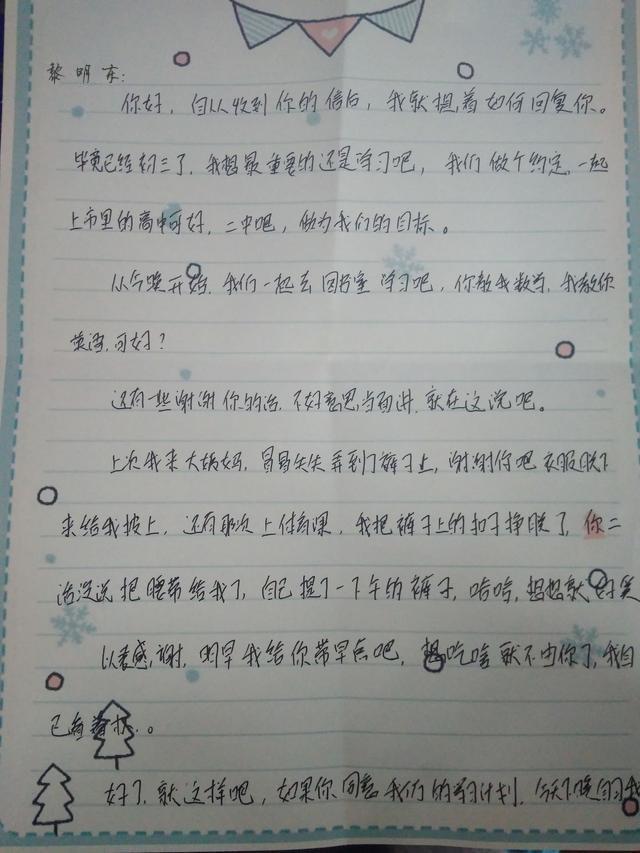 黎明东：
你好，自从收到你的信后，我就想着如何回复你。
毕竟已经初三了，我想最重要的还是学习吧，我们做个约定，一起
上市里的高中可好，二中吧，做为我们的目标。
从今晚开始，我们一起去图书室学习吧，你教我数学，我教你
英语，可好？
还有一些谢谢你的话，不好意思当面讲，就在这说吧。
上次我来大姨妈，冒冒失失弄到了裤子上，谢谢你吧衣服脱下
来给我披上，还有那次上体育课，我把裤子上的扣子挣脱了，你二
话没说把腰带给我了，自己提了一下午的裤子，哈哈，想想就好笑
以表感谢，明早我给你带早点吧，想吃啥就不由你了，我自
己看着
好了，就这样吧，如果你同意我们的学习计划，今天下晚自习我